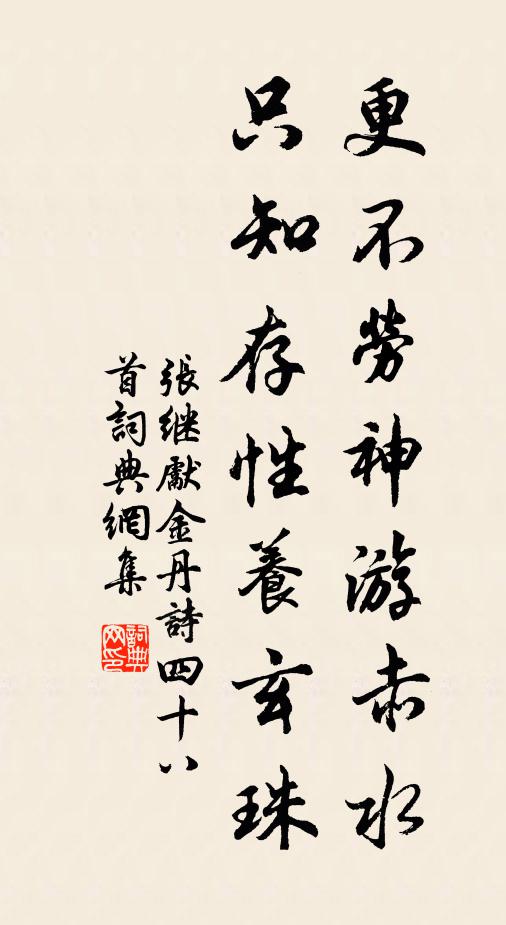 更不勞神游赤水
只知存性養玄珠
張继獻金丹詩四十八
首詞典網集
詞典
网印